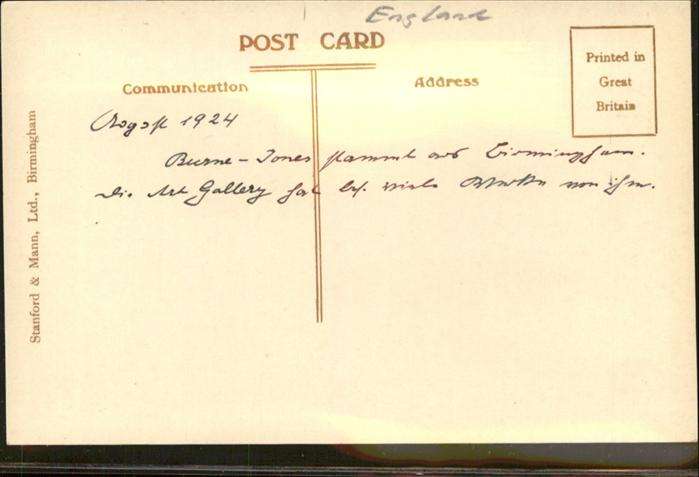 England
POST CARD
Communication
Address
Printed in
Great
Britain
August 1924
Burne-Jones stammt aus Birmingham.
Die Art Gallery hat bes. viele Werke von ihm.
Stanford & Mann, Ltd., Birmingham